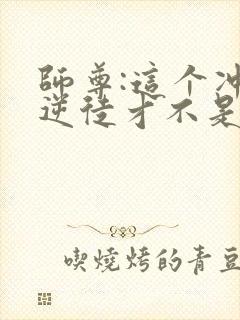 師尊:這个冲
逆徒才不是
喫燒烤的青豆